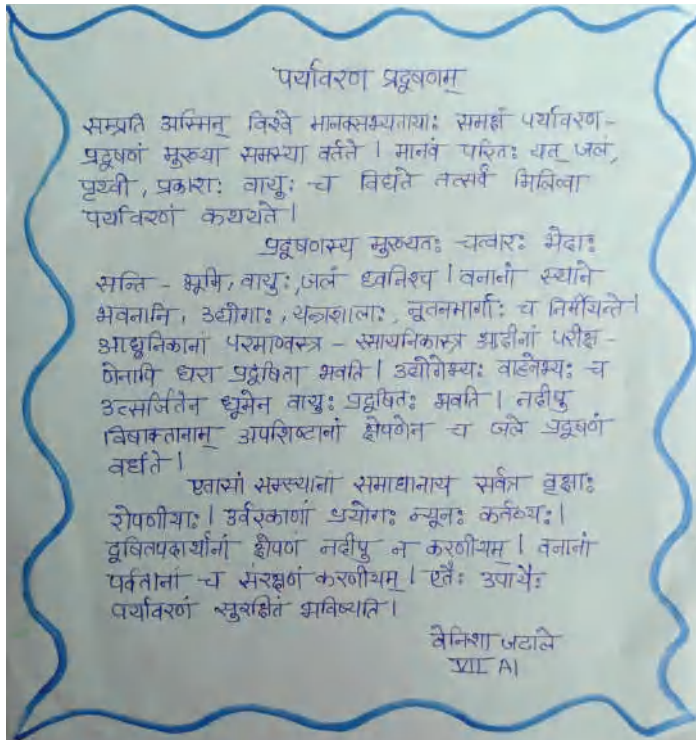 पर्यावरण प्रदूषणम्
सम्प्रति अस्मिन् विश्वे मानवसभ्यतायाः समक्षं पर्यावरण-
प्रदूषणं मुख्या समस्या वर्तते । मानवं परितः यत् जलं,
पृथ्वी, प्रकाशः वायुः च विद्यते तत्सर्वं मिलित्वा
पर्यावरणं कथयते ।
प्रदूषणस्य मुख्यतः चत्वारः भेदाः
सन्ति - भूमि, वायुः, जलं ध्वनिश्च । वनानां स्थाने
भवनानि, उद्योगाः, यन्त्रशालाः, नूतनमार्गाः च निर्मीयन्ते ।
आधुनिकानां परमाण्वस्त्र - रसायनिकास्त्र आदीनां परीक्ष-
णेनापि धरा प्रदूषिता भवति । उद्योगेभ्यः वाहनेभ्यः च
उत्सर्जितेन धूमेन वायुः प्रदूषितः भवति । नदीषु
विषाक्तानाम् अपशिष्टानां क्षेपणेन च जले प्रदूषणं
वर्धते ।
एतासां समस्यानां समाधानाय सर्वत्र वृक्षाः
रोपणीयाः । उर्वरकाणां प्रयोगः न्यूनः कर्तव्यः ।
दूषितपदार्थानां क्षेपणं नदीषु न करणीयम् । वनानां
पर्वतानां च संरक्षणं करणीयम् । एतैः उपायैः
पर्यावरणं सुरक्षितं भविष्यति ।
वेनिशा जटाले
VII A1